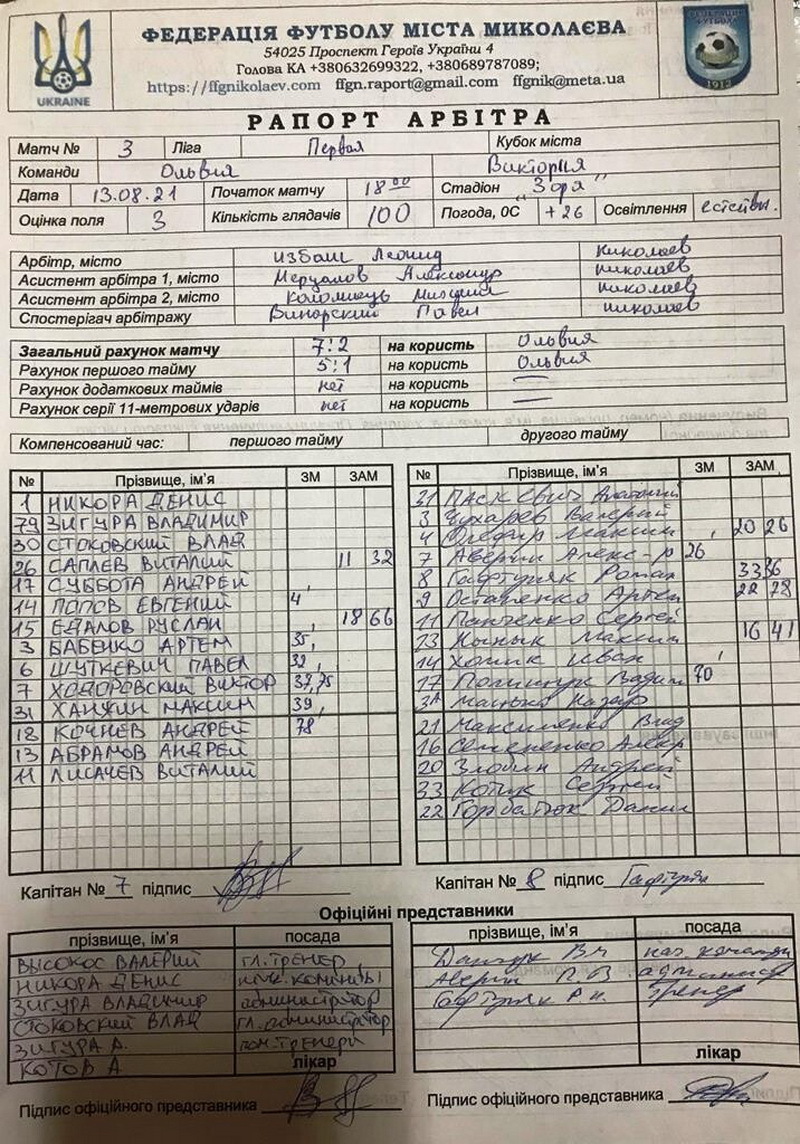 ФЕДЕРАЦІЯ ФУТБОЛУ МІСТА МИКОЛАЄВА
54025 Проспект Героїв України 4
Голова КА +380632699322, +380689787089;
https://ffgnikolaev.com ffgn.raport@gmail.com ffgnik@meta.ua
UKRAINE
РАПОРТ АРБІТРА
Матч № 3 Ліга Первая Кубок міста
Команди Ольвия Виктория
Дата 13.08.21 Початок матчу 18 00 Стадіон "Зоря"
Оцінка поля 3 Кількість глядачів 100 Погода, 0С +26 Освітлення
Арбітр, місто Избаш Леонид Николаев
Асистент арбітра 1, місто Александр николаев
Асистент арбітра 2, місто николаев
Спостерігач арбітражу Павел николаев
Загальний рахунок матчу 7:2 на користь Ольвия
Рахунок першого тайму 5:1 на користь Ольвия
Рахунок додаткових таймів нет на користь —
Рахунок серії 11-метрових ударів нет на користь —
Компенсований час: першого тайму другого тайму
№ Прізвище, ім'я ЗМ ЗАМ
1 НИКОРА ДЕНИС
79 ЗИГУРА ВЛАДИМИР
30 СТОКОВСКИЙ ВЛАД
26 САПЛЕВ ВИТАЛИЙ 11 32
17 СУББОТА АНДРЕЙ
14 ПОПОВ ЕВГЕНИЙ 4
15 ЕДАЛОВ РУСЛАН 18 66
3 БАБЕНКО АРТЕМ 35,
6 ШУТКЕВИЧ ПАВЕЛ 32,
7 ХОДОРОВСКИЙ ВИКТОР 37,75
31 ХАНЖИН МАКСИМ 39,
18 КОЧНЕВ АНДРЕЙ 78
13 АБРАМОВ АНДРЕЙ
11 ЛИСАЧЕВ ВИТАЛИЙ
№ Прізвище, ім'я ЗМ ЗАМ
21 Паскевич Анатолий
3 Чухарев Валерий
4 Максим 20 26
7 Аверин Алекс-р 26
8 Гафтуряк Роман 33 36
9 Осташенко Артем 22 78
11 Панченко Сергей
23 Максим 16 41
14 Хомик Иван
17 Вадим 70
Назар
21 Максименко Влад
16 Семененко
20 Злобин Андрей
33 Котик Сергей
22 Горбатюк Данил
Капітан № 7 підпис
Капітан № 8 підпис Гафтуряк
Офіційні представники
прізвище, ім'я посада
ВЫСОКОС ВАЛЕРИЙ ГЛ.ТРЕНЕР
НИКОРА ДЕНИС
ЗИГУРА ВЛАДИМИР администратор
СТОКОВСКИЙ ВЛАД гл.администратор
ЗИГУРА А.
КОТОВ А лікар
Підпис офіційного представника
прізвище, ім'я посада
нач. команды
Гафтуряк Р тренер
лікар
Підпис офіційного представника